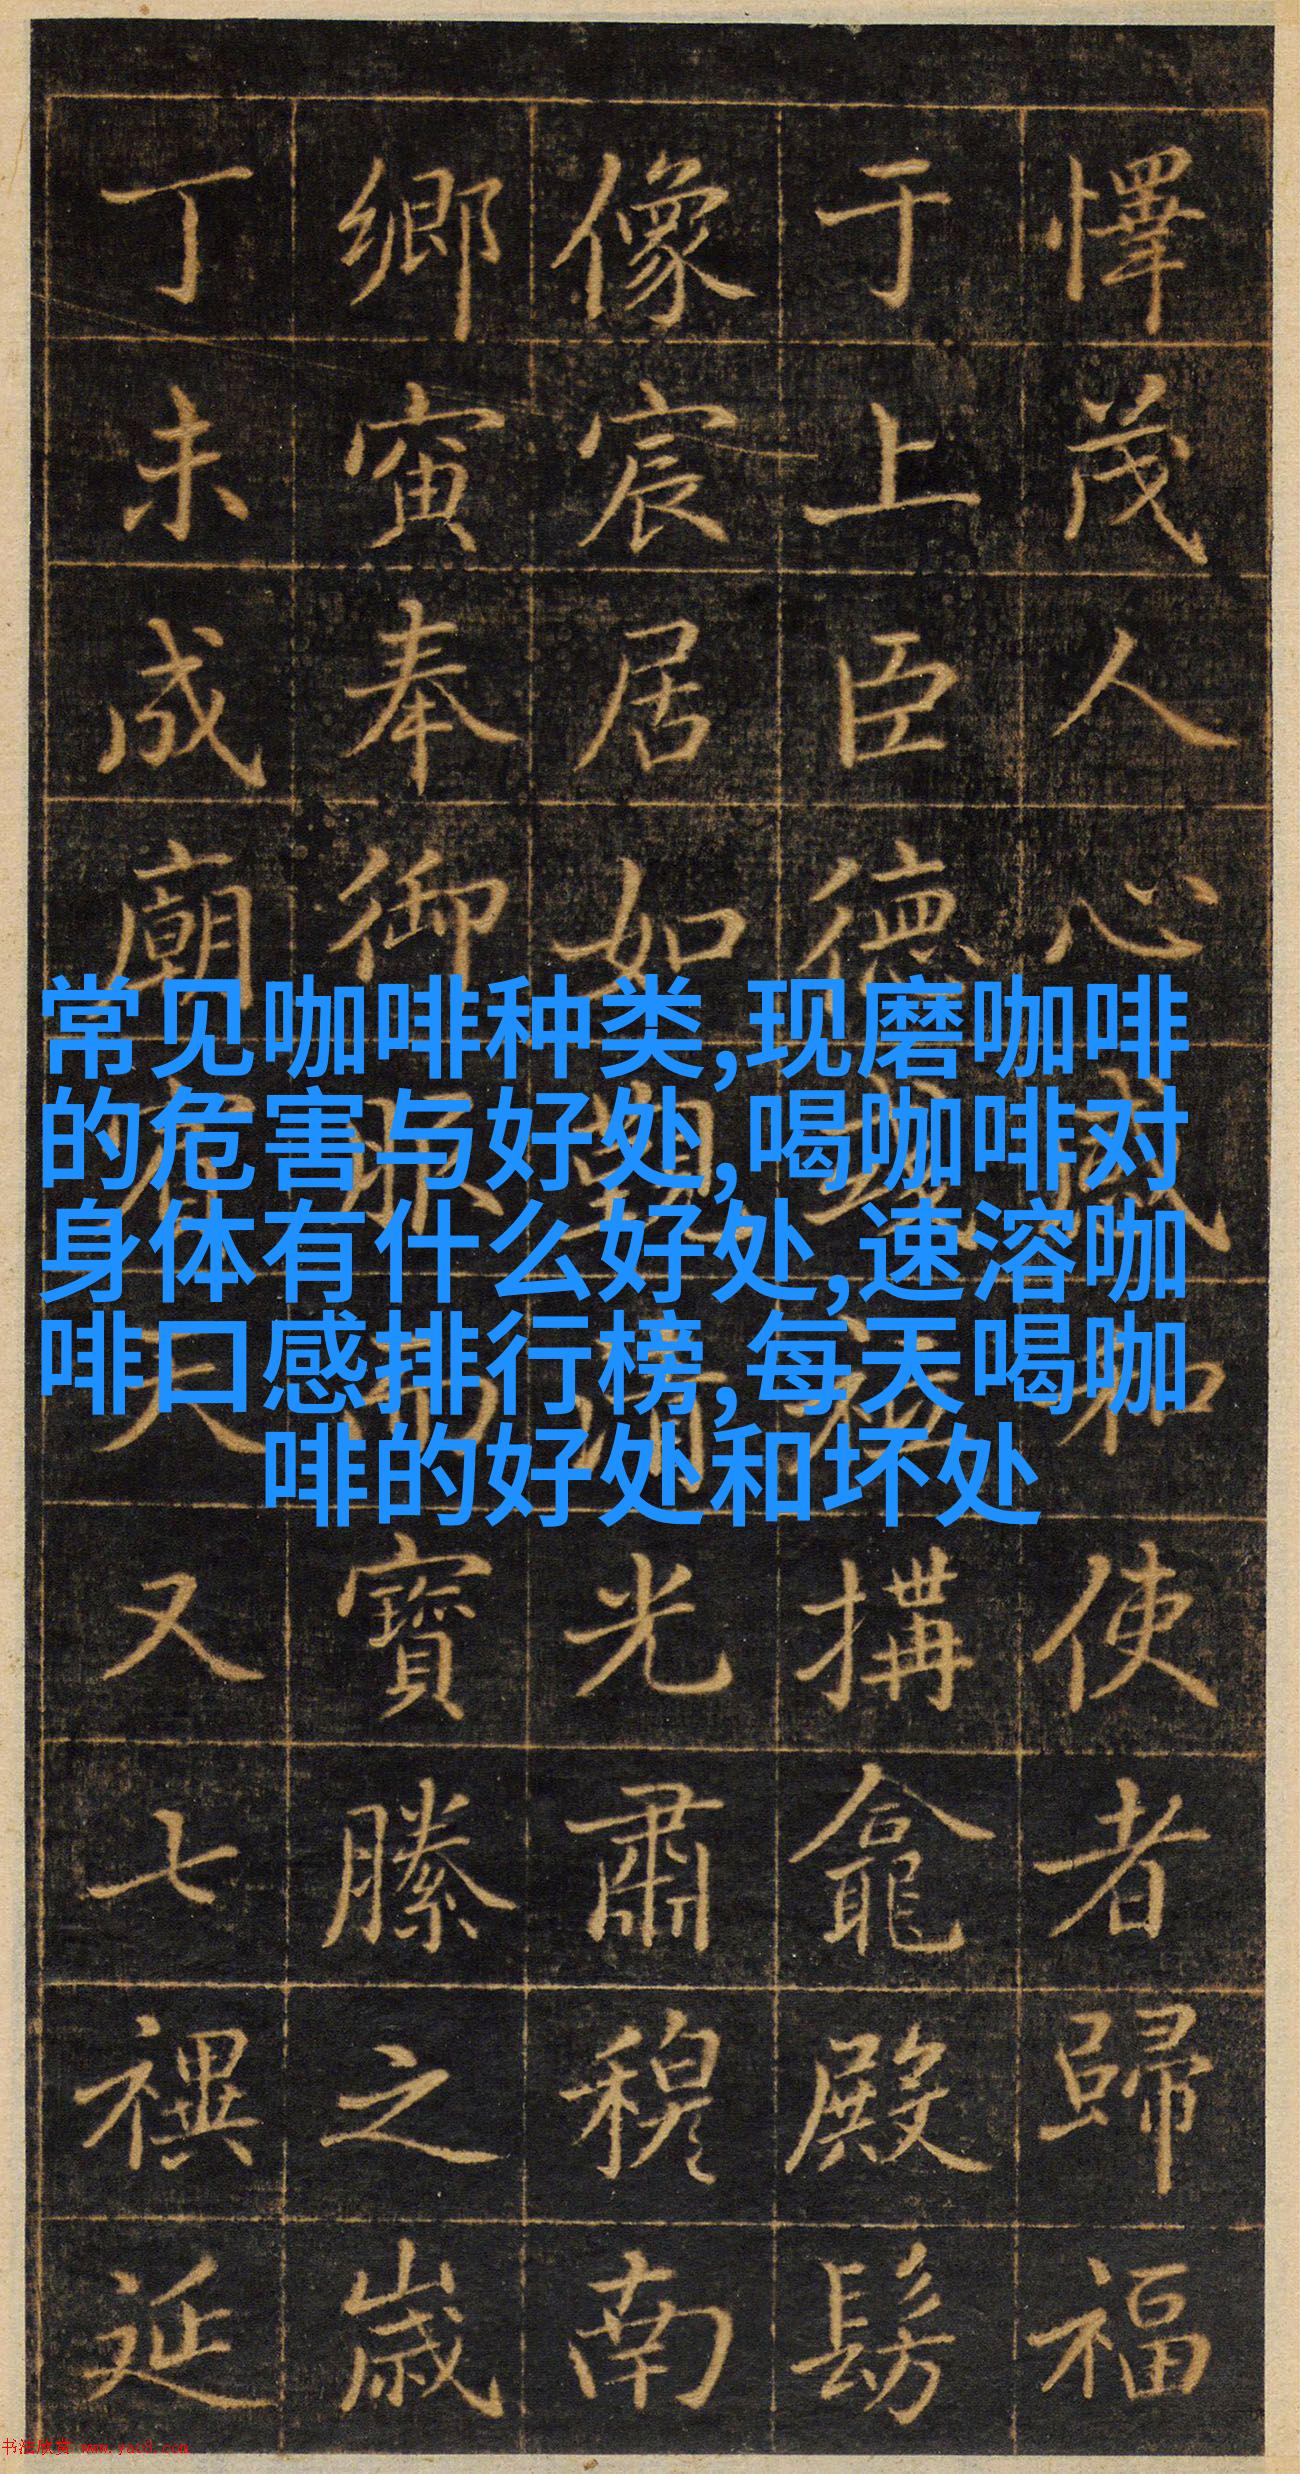 懌茂人心咸和使者歸福
于上臣德搆龕殿髣
像宸居如光肅穆南
鄉寅奉御寶縢之歲
丁未成廟有天又七禩延
常见咖啡种类,现磨咖啡
的危害与好处,喝咖啡对
身体有什么好处,速溶咖
啡口感排行榜,每天喝咖
啡的好处和坏处
书法欣赏 www.yac8.com